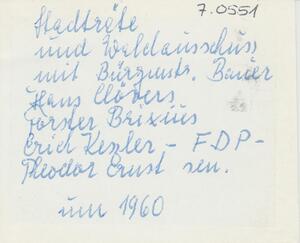 7.0551
Stadträte
und Waldausschuss
mit Bürgmstr. Bauer
Hans Clövers
Förster Brixius
Erich Kesler - FDP -
Theodor Ernst sen.
um 1960